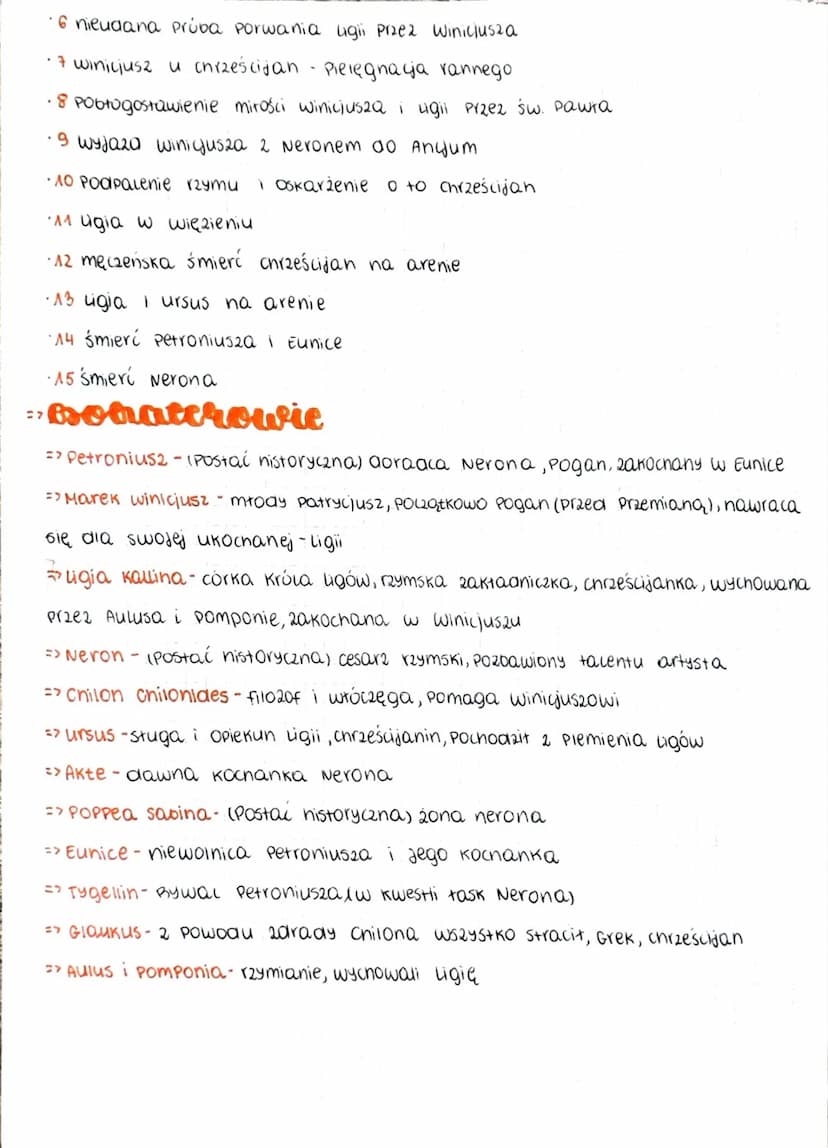 ·6 nieudana próba porwania Ligii przez Winicjusza
·7 Winicjusz u chrześcijan - pielęgnacja rannego
·8 Pobłogosławienie miłości Winicjusza i Ligii przez św. Pawła
·9 wyjazd Winicjusza z Neronem do Ancjum
·10 Podpalenie rzymu i oskarżenie o to chrześcijan
·11 Ligia w więzieniu
·12 męczeńska śmierć chrześcijan na arenie
·13 Ligia i ursus na arenie
·14 śmierć Petroniusza i Eunice
·15 śmierć Nerona
=> Bohaterowie
=> Petroniusz - (postać historyczna) doradca Nerona, pogan, zakochany w Eunice
=> Marek Winicjusz - młody patrycjusz, początkowo pogan (przed przemianą), nawraca
się dla swojej ukochanej - Ligii
=> Ligia Kallina - córka króla Ligów, rzymska zakładniczka, chrześcijanka, wychowana
przez Aulusa i Pomponie, zakochana w Winicjuszu
=> Neron - (postać historyczna) cesarz rzymski, pozbawiony talentu artysta
=> Chilon Chilonides - filozof i włóczęga, pomaga Winicjuszowi
=> Ursus - sługa i opiekun Ligii, chrześcijanin, pochodził z plemienia Ligów
=> Akte - dawna kochanka Nerona
=> Poppea Sabina - (postać historyczna) żona nerona
=> Eunice - niewolnica Petroniusza i jego kochanka
=> Tygellin - Rywal Petroniusza (w kwestii łask Nerona)
=> Glaukus - z powodu zdrady Chilona wszystko stracił, Grek, chrześcijan
=> Aulus i Pomponia - rzymianie, wychowali Ligię